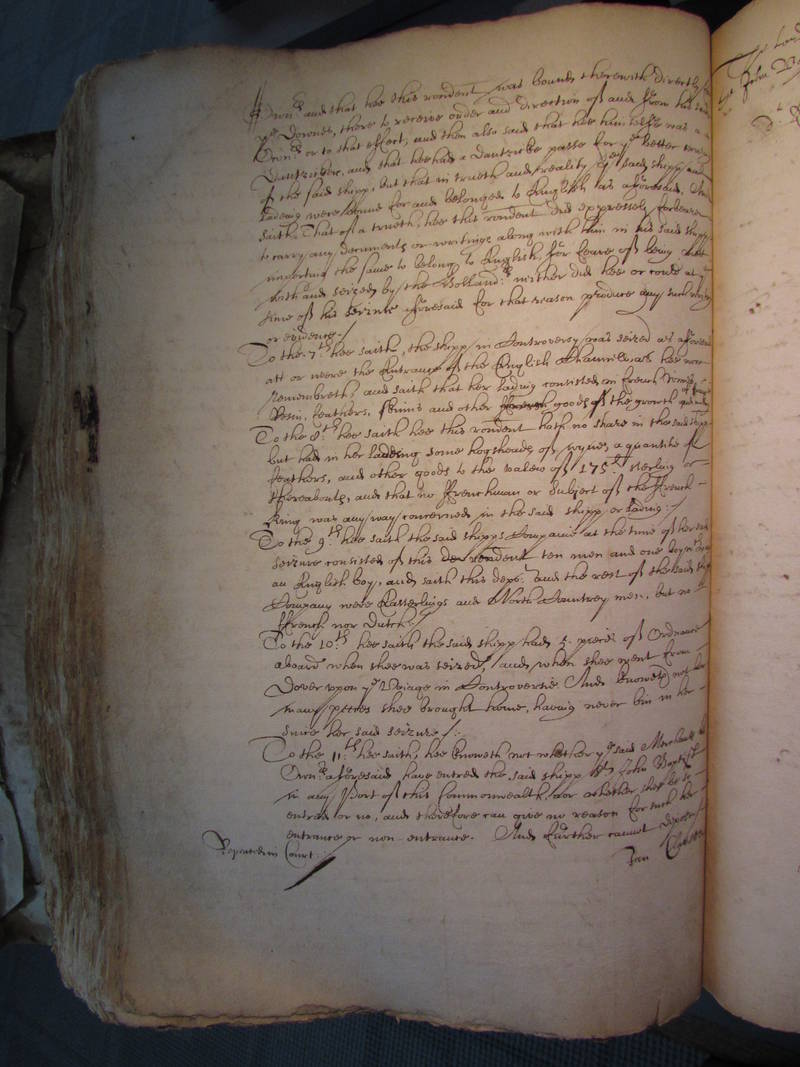 Own:rs and that hee this rendent was bound therewith directly for
ye Downes, there to receive order and direction of and from his said
Own:rs or to that effect, and then also said that hee himselfe was a
Dantzicker, and that hee had a Dantzicke passe for ye better
of the said shipp, but that in trueth and reality ye said shipp and
ladeing were bound for and belonged to English as aforesaid, And
saith That of a trueth, hee this rendent did expressely forbeare
to carry any documents or writings along with him in his said shipp
importing the same to belong to English, for feare of being mett
with and seized by the Holland:rs neither did hee or could at ye
time of his seizure aforesaid for that reason produce any such writing
or evidence./
To the 7:th hee saith, the shipp in controversy was seized as aforesaid
att or neere the Entrance of the English Channell, as hee now
remembreth, and saith that her lading consisted in french wines,
Rosin, feathers, skinns and other goods of the growth
To the 8:th hee saith hee this rendent hath no share in the said shipp
but had in her ladeing some hogsheads of wyne, a quantitie of
feathers, and other goods to the valew of 175 li sterling or
thereabouts, and that no Frenchman or Subject of the French
King was any way concerned in the said shipp or lading:/
To the 9:th hee saith the said shipps Companie at the time of her said
seizure consisted of this rendent ten men and one boy
an English boy, and saith this depo:t and the rest of the said shipps
Company were Easterlings and North Countrey men, but no
French nor Dutch./
To the 10:th hee saith the said shipp had 5 peeces of Ordnance
aboard when shee was seized, and when shee went from
Dover upon ye Voiage in Controversie And knoweth not how
many peeces shee brought home, having never bin in her
since her said seizure /:
To the 11:th hee saith, hee knoweth not whether ye said Merchants
Own:rs aforesaid have entred the said shipp St John Baptist
in any Port of this Commonwealth, nor whether shee be
entred or no, and therefore can give no reason for such her
entrance or non-entrance. And further cannot depose/
Repeated in Court:/
Jan